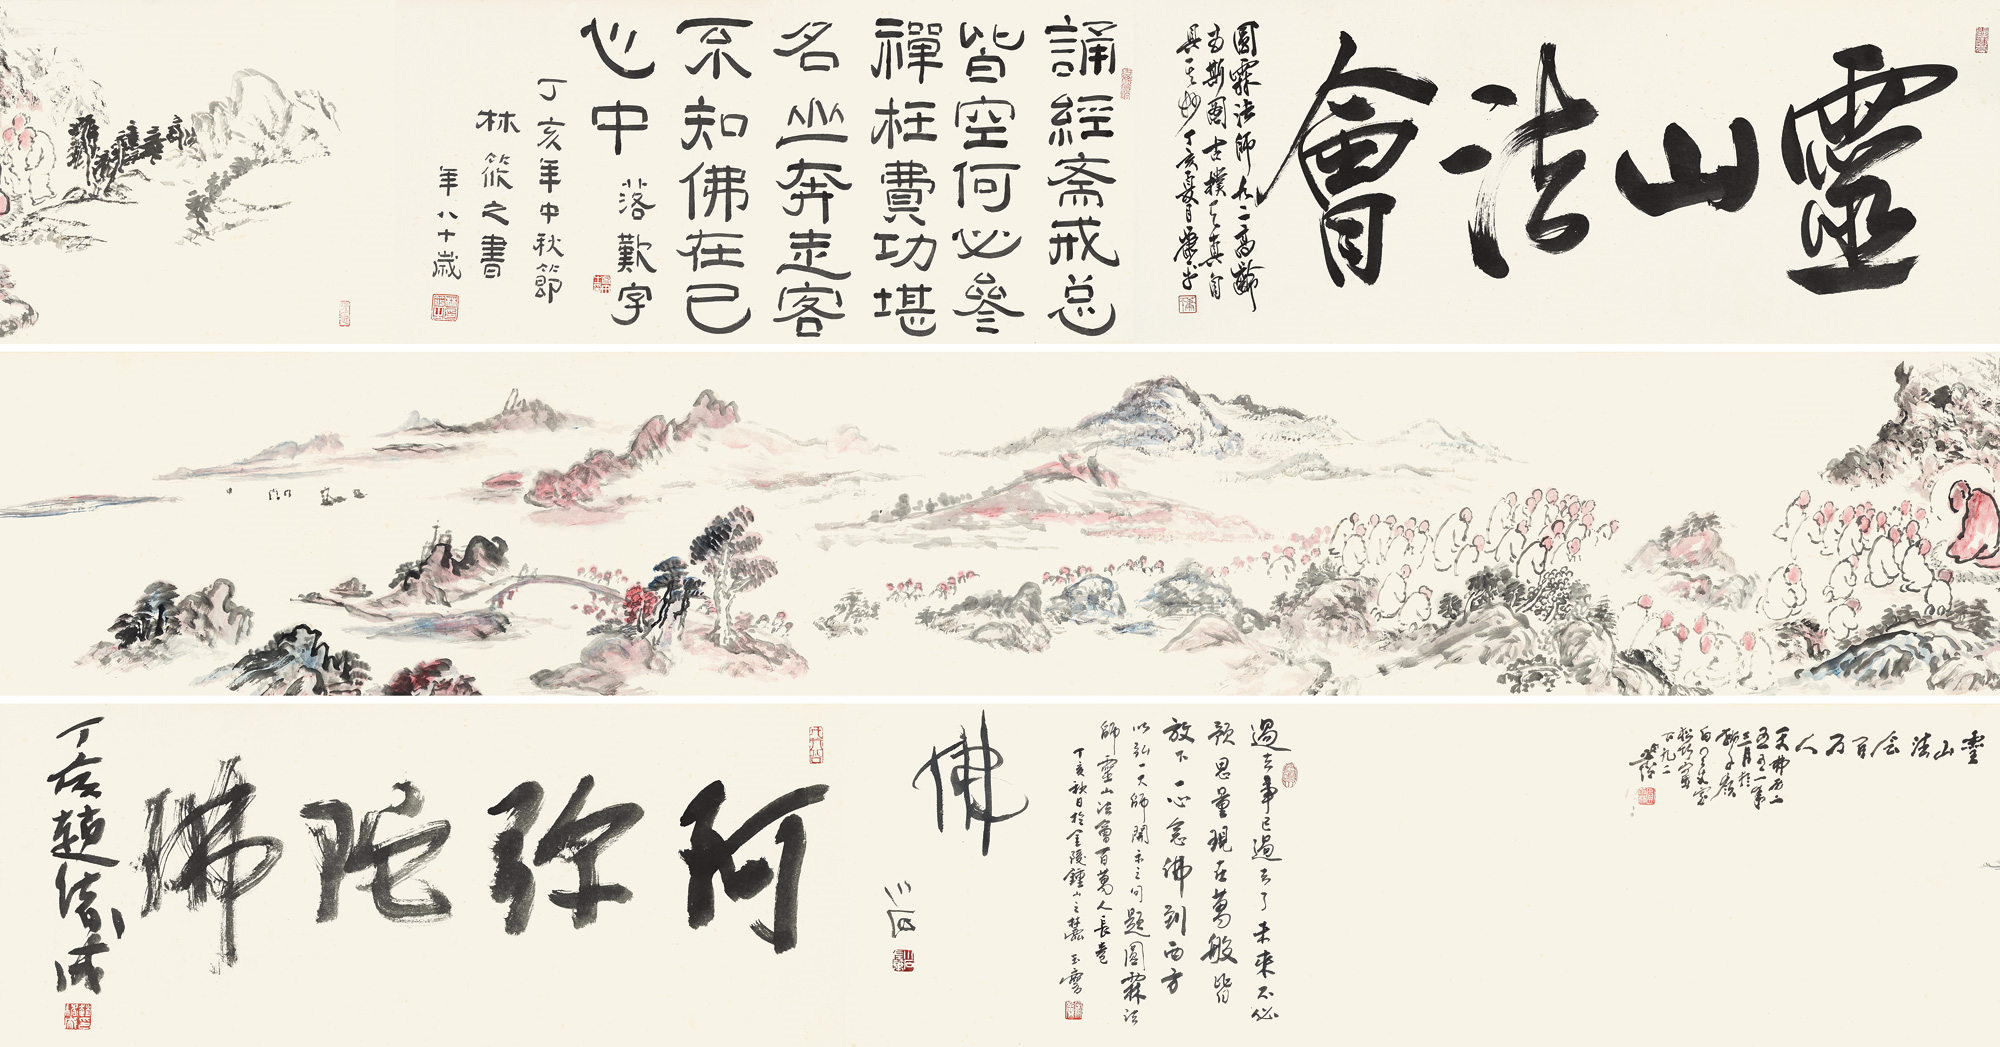 靈山法會
圓霖法師九二高齡
為斯圖古樸天真自
具一
丁亥夏月
誦經斋戒总
皆空何必參
禪枉費功堪
名坐奔走客
不知佛在己
心中
落歎字
丁亥年中秋節
林筱之書
年八十歲
靈山法会百万人
天
五五一年
三月於
獅子嶺
九二
過去事已過去了未來不必
預思量現在萬般皆
放下一心念佛到西方
以弘一大師開示之句題圓霖法
師靈山法會百萬人長卷
丁亥秋日於金陵鍾山之麓
佛
阿弥陀佛
丁亥趙緒成